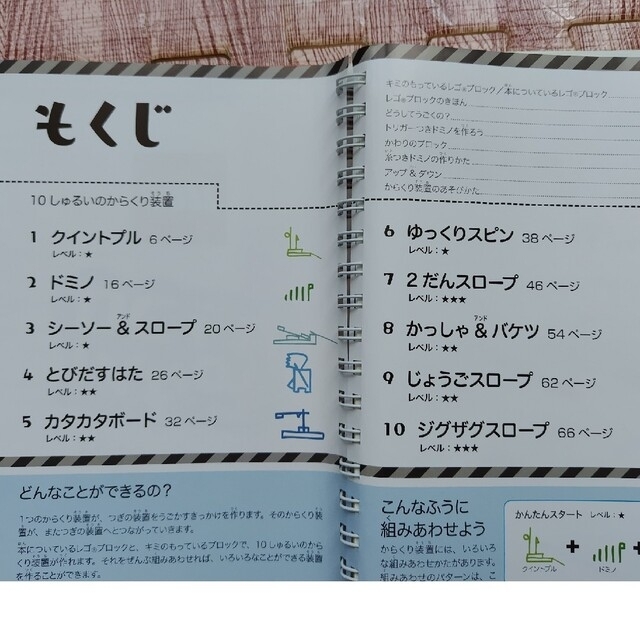 もくじ
10しゅるいのからくり装置
そうち
1 クイントプル 6ページ
レベル：★
2 ドミノ 16ページ
レベル：★
アンド
3 シーソー&スロープ 20ページ
レベル：★
4 とびだすはた 26ページ
レベル：★★
5 カタカタボード 32ページ
レベル：★★
どんなことができるの？
1つのからくり装置が、つぎの装置をうごかすきっかけを作ります。そのからくり装
置が、またつぎの装置へとつながっていきます。
本についているレゴ®ブロックと、キミのもっているブロックで、10しゅるいのから
くり装置が作れます。それをぜんぶ組みあわせれば、いろいろなことができる装置
を作ることができます。
キミのもっているレゴ®ブロック／本についているレゴ®ブロック
レゴ®ブロックのきほん
どうしてうごくの？
トリガーつきドミノを作ろう
かわりのブロック
糸つきドミノの作りかた
アップ&ダウン
からくり装置のあそびかた
6 ゆっくりスピン 38ページ
レベル：★
7 2だんスロープ 46ページ
レベル：★★★
アンド
8 かっしゃ&バケツ 54ページ
レベル：★★
9 じょうごスロープ 62ページ
レベル：★★
10 ジグザグスロープ 66ページ
レベル：★★★
こんなふうに
組みあわせよう
からくり装置には、いろいろ
な組みあわせかたがあります。
組みあわせのパターンは、こ
かんたんスタート レベル：★
クイントプル
+
ドミノ